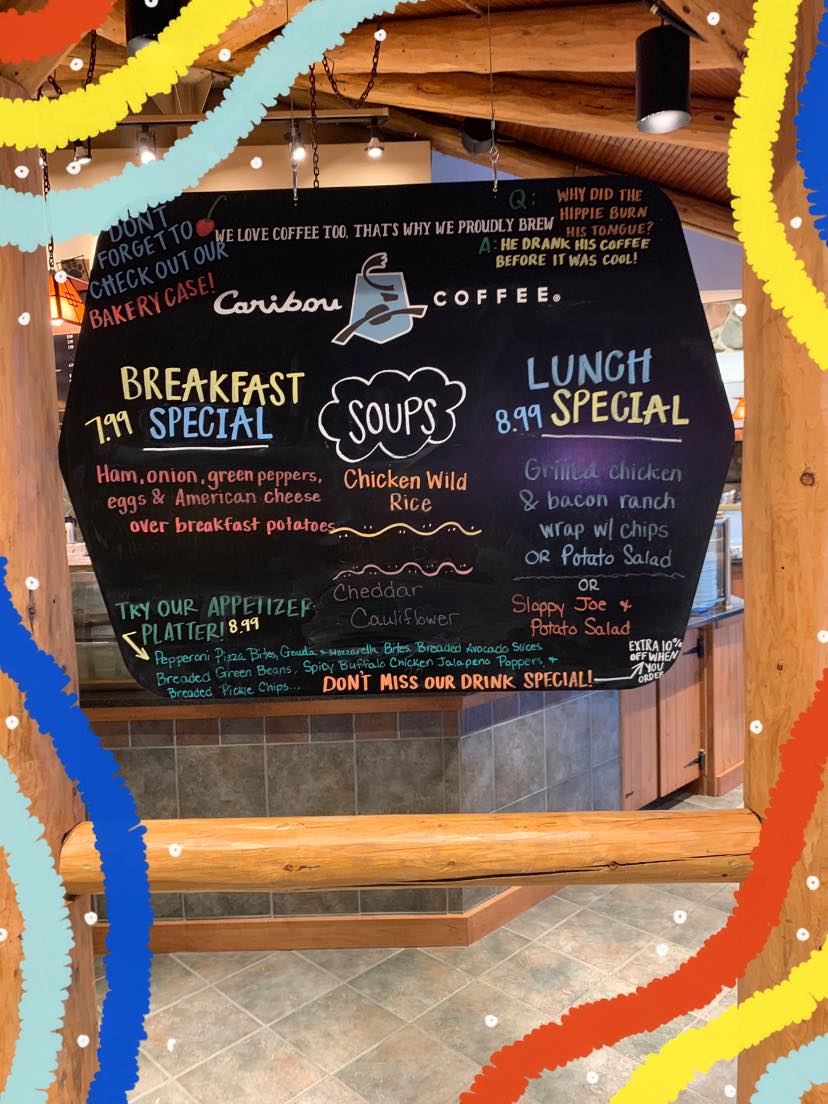 DON'T
FORGET TO
CHECK OUT OUR
BAKERY CASE!
WE LOVE COFFEE TOO, THAT'S WHY WE PROUDLY BREW
Q: WHY DID THE
HIPPIE BURN
HIS TONGUE?
A: HE DRANK HIS COFFEE
BEFORE IT WAS COOL!
Caribou COFFEE®
BREAKFAST
7.99 SPECIAL
Ham, onion, green peppers,
eggs & American cheese
over breakfast potatoes
SOUPS
Chicken Wild
Rice
Cheddar
Cauliflower
LUNCH
8.99 SPECIAL
Grilled chicken
& bacon ranch
wrap w/ chips
OR Potato Salad
OR
Sloppy Joe &
Potato Salad
TRY OUR APPETIZER
PLATTER! 8.99
Pepperoni Pizza Bites, Gouda & Mozzarella Bites, Breaded Avocado Slices
Breaded Green Beans, Spicy Buffalo Chicken Jalapeno Poppers, &
Breaded Pickle Chips...
DON'T MISS OUR DRINK SPECIAL!
EXTRA 10%
OFF WHEN
YOU
ORDER